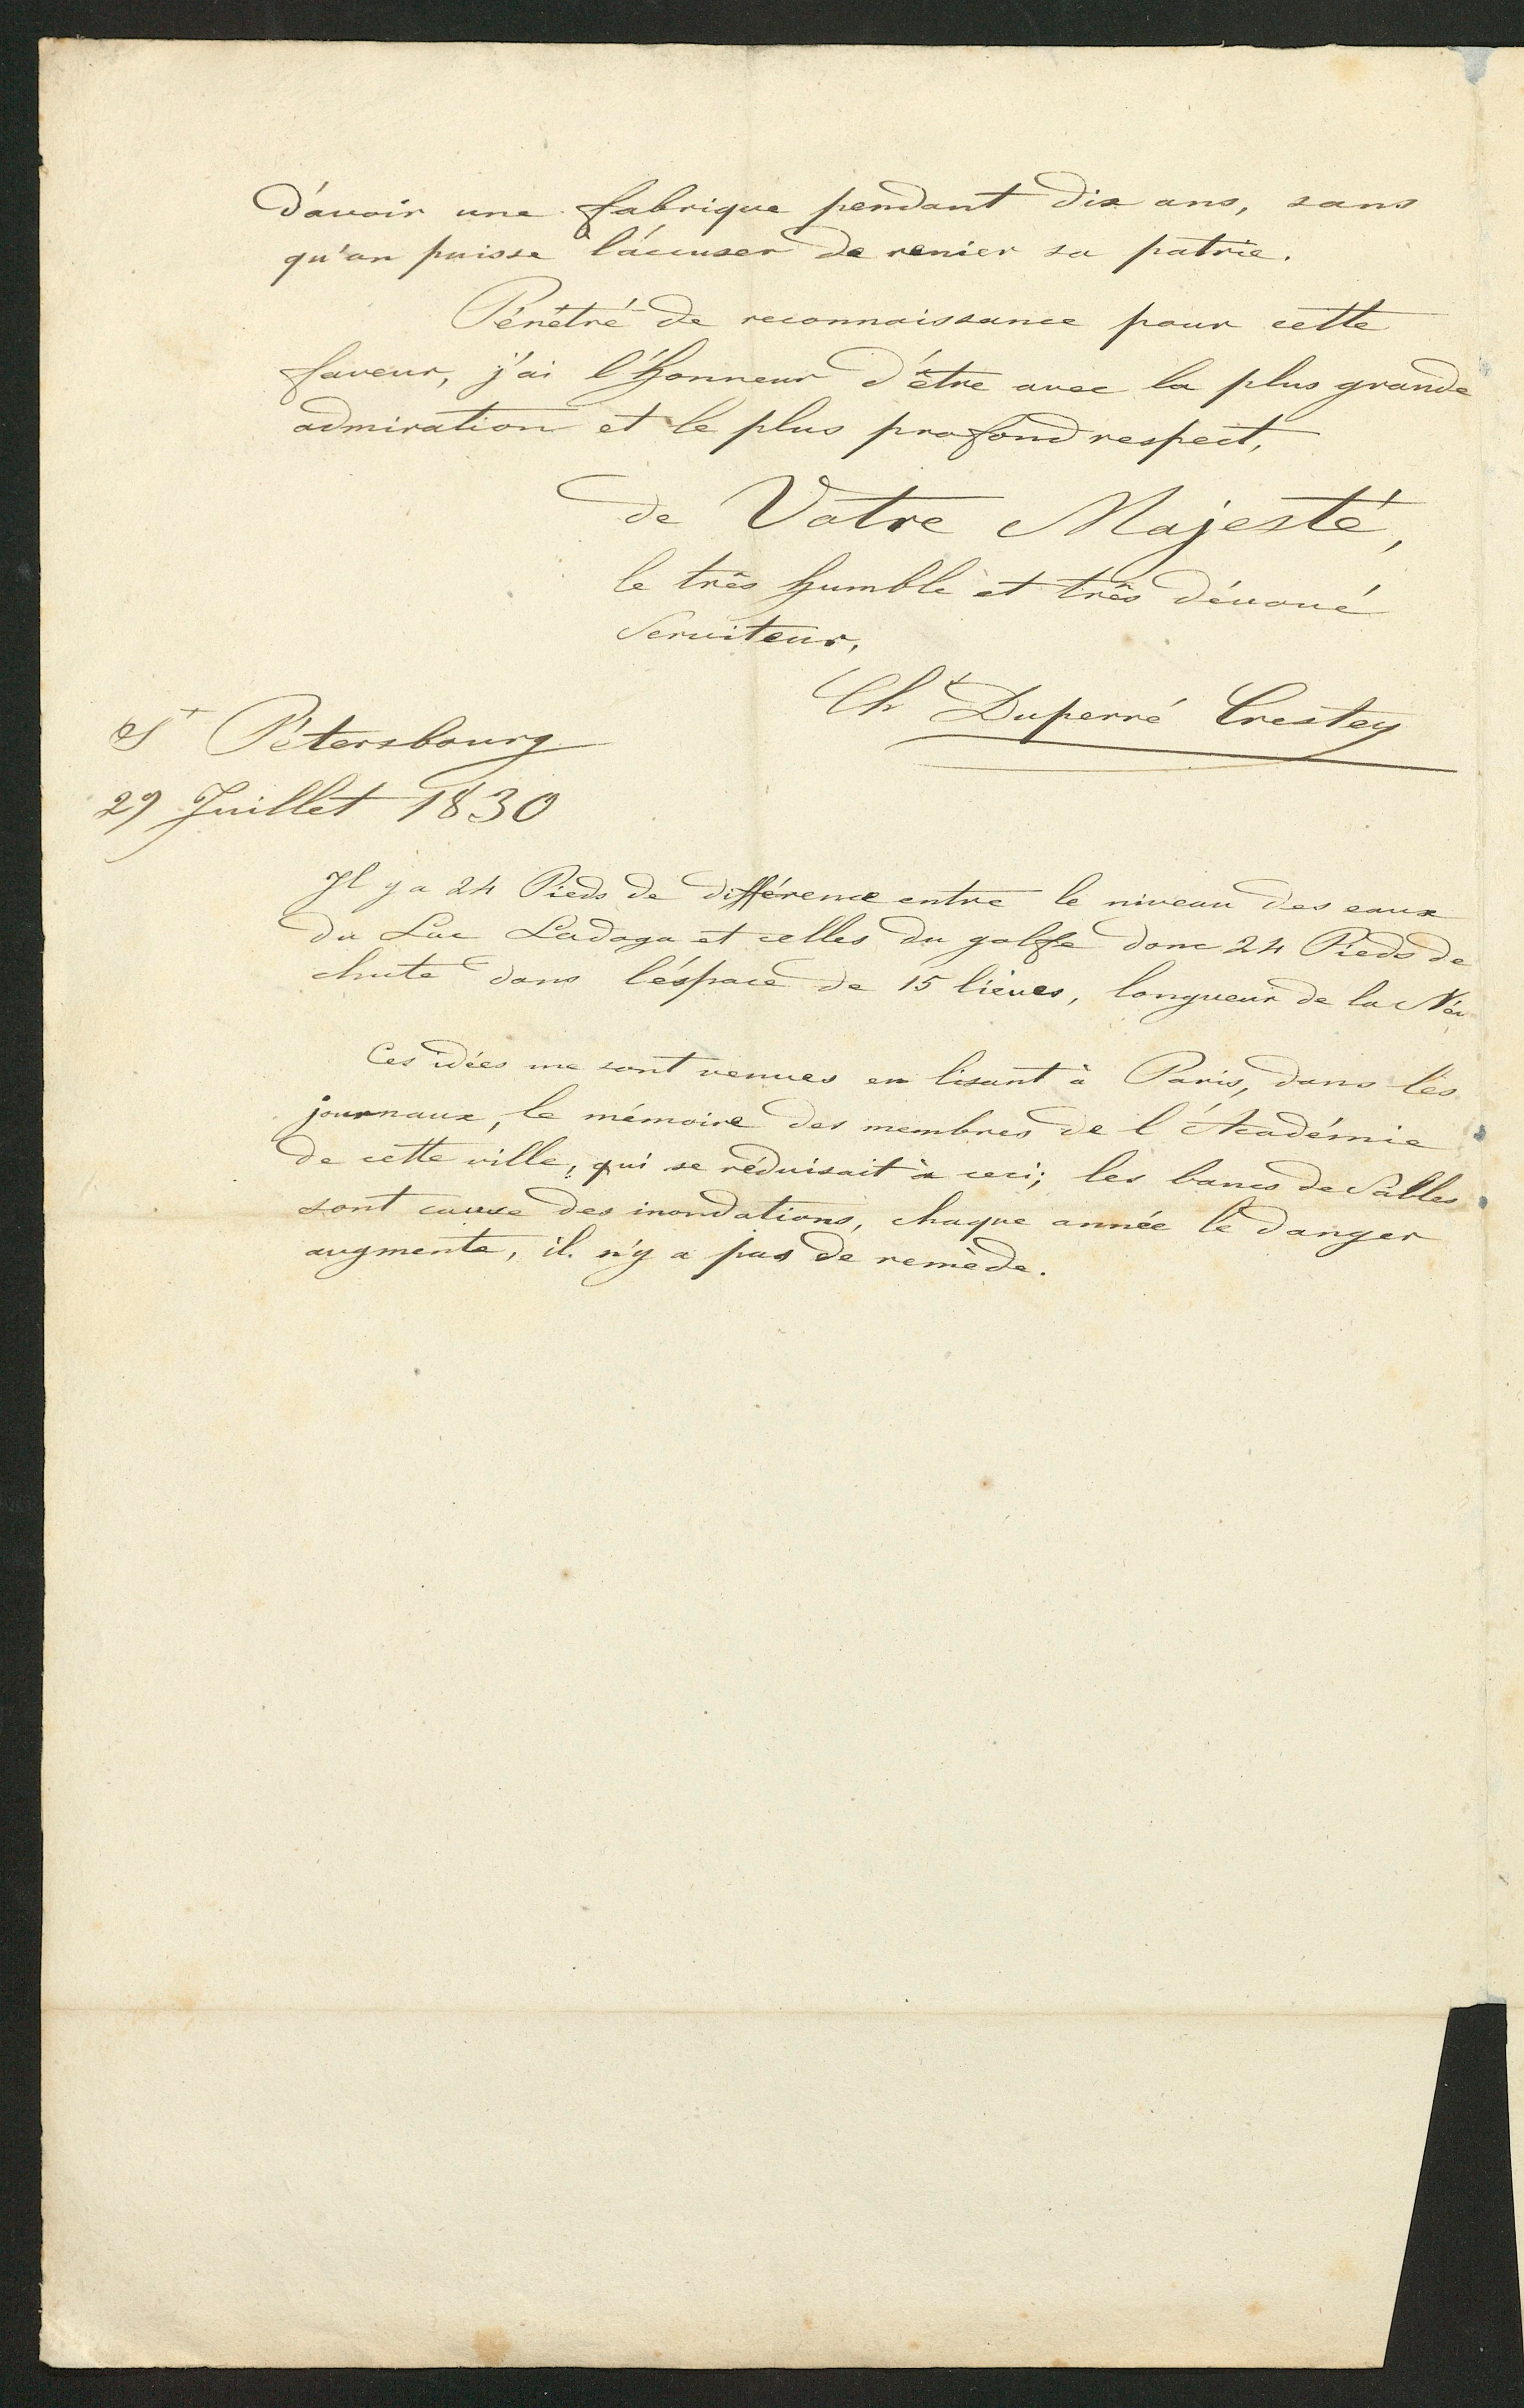 d'avoir une fabrique pendant dix ans, sans
qu'on puisse l'accuser de renier sa patrie.
Pénétré de reconnaissance pour cette
faveur, j'ai l'honneur d'être avec la plus grande
admiration et le plus profond respect,
de Votre Majesté,
le très humble et très dévoué
Serviteur,
Cht Duperré Crestey
St Pétersbourg
29 Juillet 1830
Il y a 24 Pieds de différence entre le niveau des eaux
du Lac Ladoga et celles du golfe donc 24 Pieds de
chute dans l'éspace de 15 lieues, longueur de la Név
Ces idées me sont venues en lisant à Paris, dans les
journaux, le mémoire des membres de l'Académie
de cette ville, qui se réduisait à ceci; les bancs de Salles
sont cause des inondations, chaque année le danger
augmente, il n'y a pas de remède.